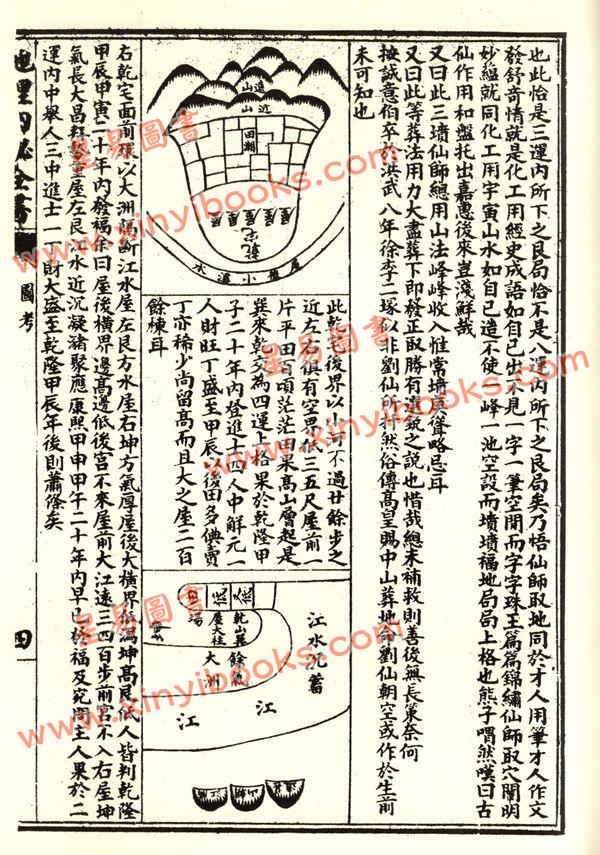 也此恰是三運內所下之艮局恰不是八運內所下之艮局矣乃悟仙師取地同於才人用筆才人作文
發舒奇情就是化工用經史成語如自己出不見一字一筆空閒而字字珠玉篇篇錦繡仙師取穴闡明
妙蘊就同化工用宇寅山水如自己造不使一峰一池空設而墳墳福地局局上格也熊子喟然嘆曰古
仙作用和盤托出嘉惠後來豈淺鮮哉
又曰此三墳仙師總用山法峰峰收入惟常墳巽聳略忌耳
又曰此等葬法用力大盡葬下即發正取勝有遺之說也惜哉總未補救則善後無長策奈何
按誠意伯卒於洪武八年徐李二塚似非劉仙所扦然俗傳高皇賜中山葬地命劉仙朝空或作於生前
未可知也
遠山
近山
田湖
屋屋屋屋屋
乾宅
屋後小溪水
此乾宅後界以小不過廿餘步之
近左右俱有空界低三五尺屋前一
片平田百頃茫茫田案高山層起是
巽來乾交為四運上格果於乾隆甲
子二十年內登進士四人中解元一
人財旺丁盛至甲辰後田多典賣
丁亦稀少尚留高而且大之屋二百
餘棟耳
低
低
田場
乾山巽
屋大柱
餘氣
大洲
江水沉蓄
江
江
右乾宅面前以大洲隔斷江水屋左艮方水屋右坤方氣厚屋後大橫界坤高艮低人皆判乾隆
甲辰甲寅二十年內發福余曰屋後橫界邊高邊低後宮不來屋前大江遠三四百步前宮不入右屋坤
氣長大昌重屋左艮江水近沉凝瀦聚應康熙甲申甲午二十年內早已發福及究問主人果於二
運內中舉人三中進士一丁財大盛至乾隆甲辰年後則蕭條矣
地理
全書
圖考
四
星易圖書
www.xinyibooks.com
星易圖書
www.xinyibooks.com
星易圖書
www.xinyibooks.com